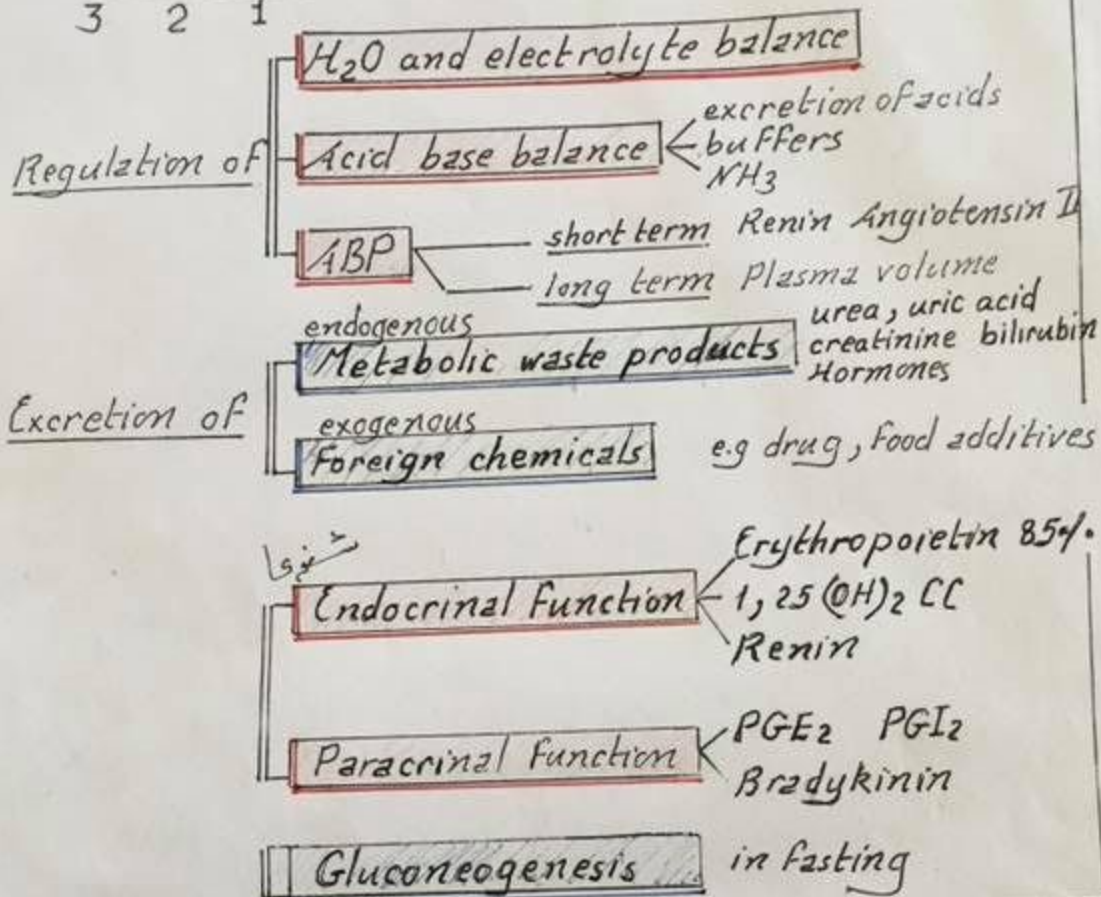 3 2 1
H₂O and electrolyte balance
Regulation of
Acid base balance
excretion of acids
buffers
NH₃
ABP
short term Renin Angiotensin II
long term Plasma volume
Excretion of
endogenous
Metabolic waste products
urea, uric acid
creatinine bilirubin
Hormones
exogenous
Foreign chemicals
e.g drug, Food additives
Endocrinal Function
Erythropoietin 85%.
1,25(OH)₂ CC
Renin
Paracrinal Function
PGE₂ PGI₂
Bradykinin
Gluconeogenesis
in fasting